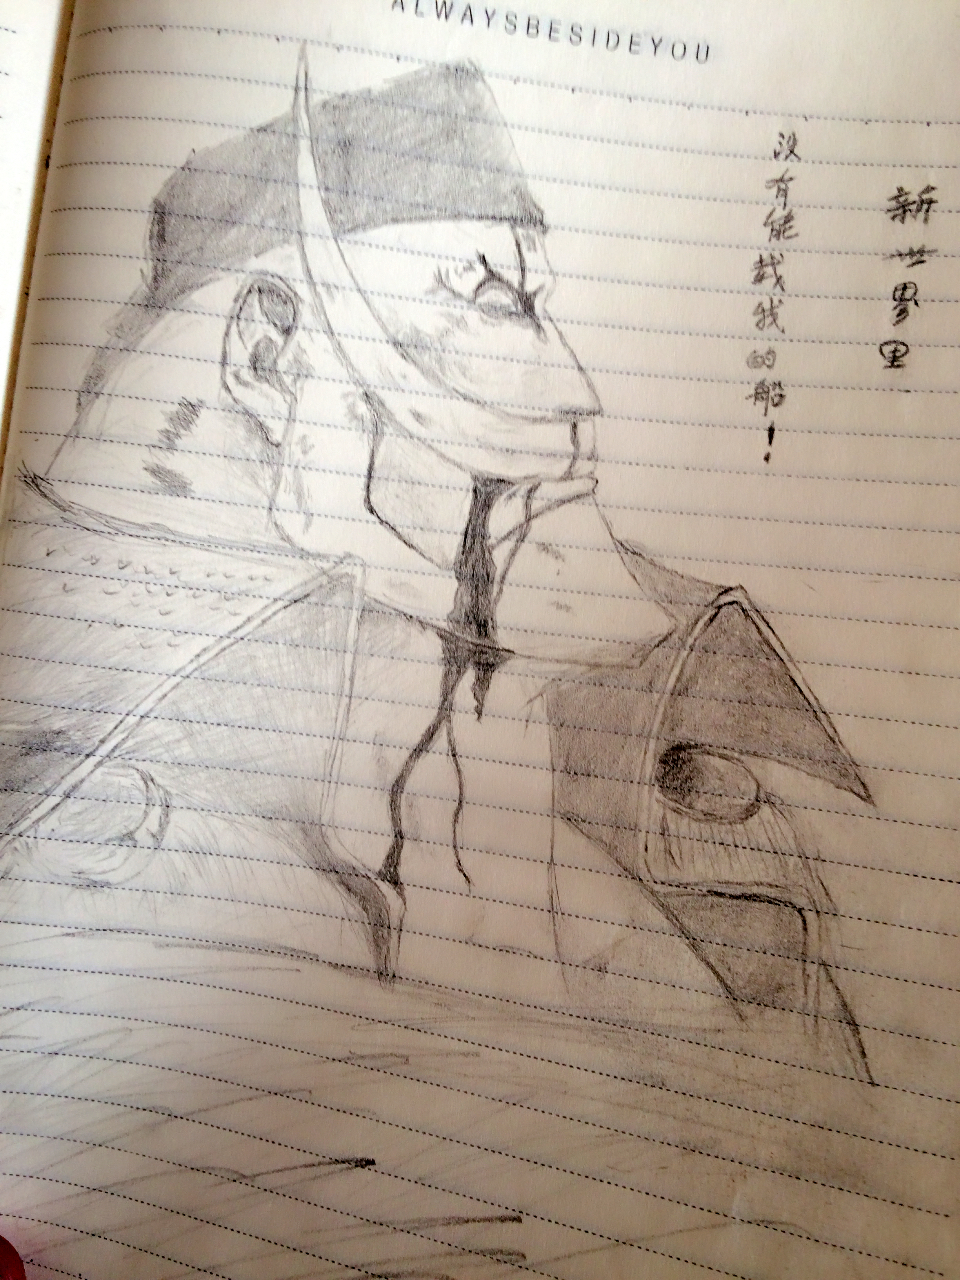 ALWAYSBESIDEYOU
新世界里
没有能载我的船！